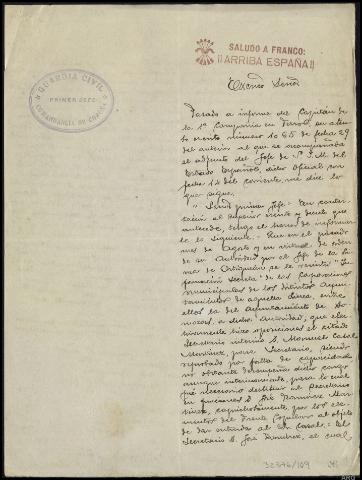 SALUDO A FRANCO:
¡¡ARRIBA ESPAÑA!!
GUARDIA CIVIL
PRIMER JEFE
COMANDANCIA DE CORUÑA
Excmo Señor
Pasado a informe del Capitán de
la 1ª Compañía en Ferrol, su aten
to escrito número 1085 de fecha 29
del anterior al que se acompañaba
el adjunto del Jefe de S.I.M. del
Estado Español, dicho Oficial con
fecha 14 del corriente, me dice lo
que sigue:
"Señor primer Jefe: En contes
tación al superior escrito y oficio que
antecede, tengo el honor de informar
le lo siguiente: Que en el pasado
mes de Agosto y en virtud de orden
de su Autoridad por el Jefe de la Lí
nea de Ortigueira se le remitió "In
formación Secreta" de las Corporaciones
municipales de los distintos Ayun
tamientos de aquella Línea, entre
ellos la del Ayuntamiento de
a dicha Autoridad, que efec
tivamente hizo oposiciones el citado
Secretario interino D. Manuel Casal
Martínez, para Secretario, siendo
reprobado por falta de capacidad
no obstante desempeñar dicho cargo
aunque interinamente, para lo cual
fué necesario destituir al Secretario
en funciones D. José Ramírez Mar
tínez, caprichosamente por los ele
mentos del Frente Popular al objeto
de dar entrada al Sr. Casal. El
Secretario D. José Ramírez, el cual
32376/109